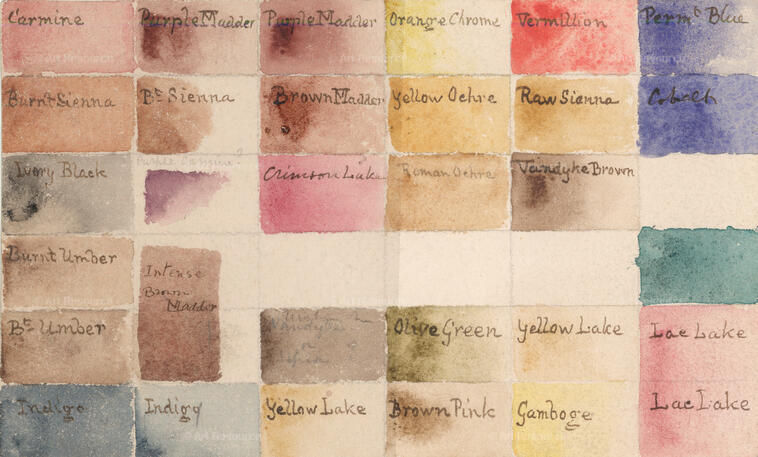 Carmine
Purple Madder
Purple Madder
Orange Chrome
Vermillion
Perm.t Blue
Burnt Sienna
Bt Sienna
Brown Madder
Yellow Ochre
Raw Sienna
Cobalt
Ivory Black
Purple Carmine?
Crimson Lake
Roman Ochre
Vandyke Brown
Burnt Umber
Intense
Brown
Madder
Bt Umber
Vandyke
or
Olive Green
Yellow Lake
Lac Lake
Indigo
Indigo
Yellow Lake
Brown Pink
Gamboge
Lac Lake